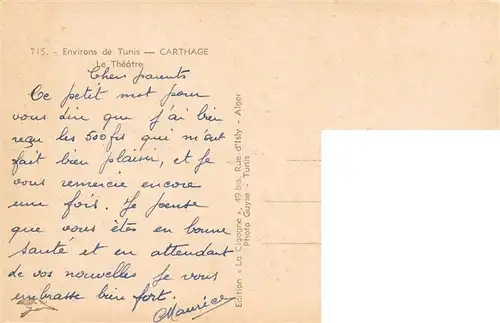 715. - Environs de Tunis — CARTHAGE
Le Théâtre
Chers parents
Ce petit mot pour
vous dire que j'ai bien
reçu les 500frs qui m'ont
fait bien plaisir, et je
vous remercie encore
une fois. Je pense
que vous êtes en bonne
santé et en attendant
de vos nouvelles je vous
embrasse bien fort.
Maurice
Edition « La Cigogne », 49 bis, Rue d'Isly - Alger
Photo Guyse - Tunis